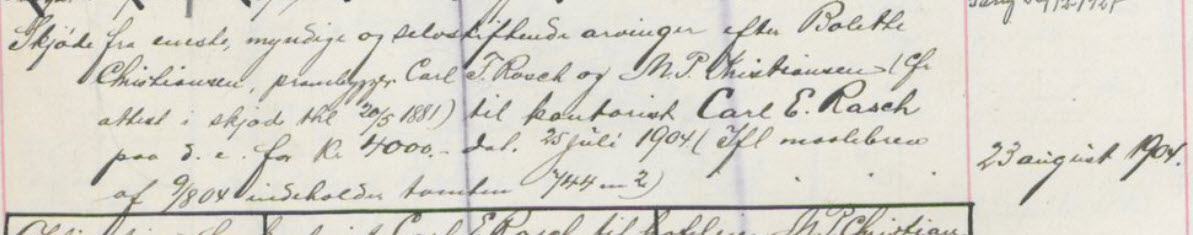 Skjøde fra eneste, myndige og selvskiftende arvinger efter Bolethe
Christiansen, prambygger Carl T. Rasch og M. P. Christiansen (Cfr
attest i skjøde thl 20/5 1881) til kontorist Carl E. Rasch
paa d. e. for Kr 4000.- dat. 25 juli 1904 (Ifl maalebrev
af 9/804 indeholder tomten 744 m2)
23 august 1904.
Carl E Rasch til M. P. Christian